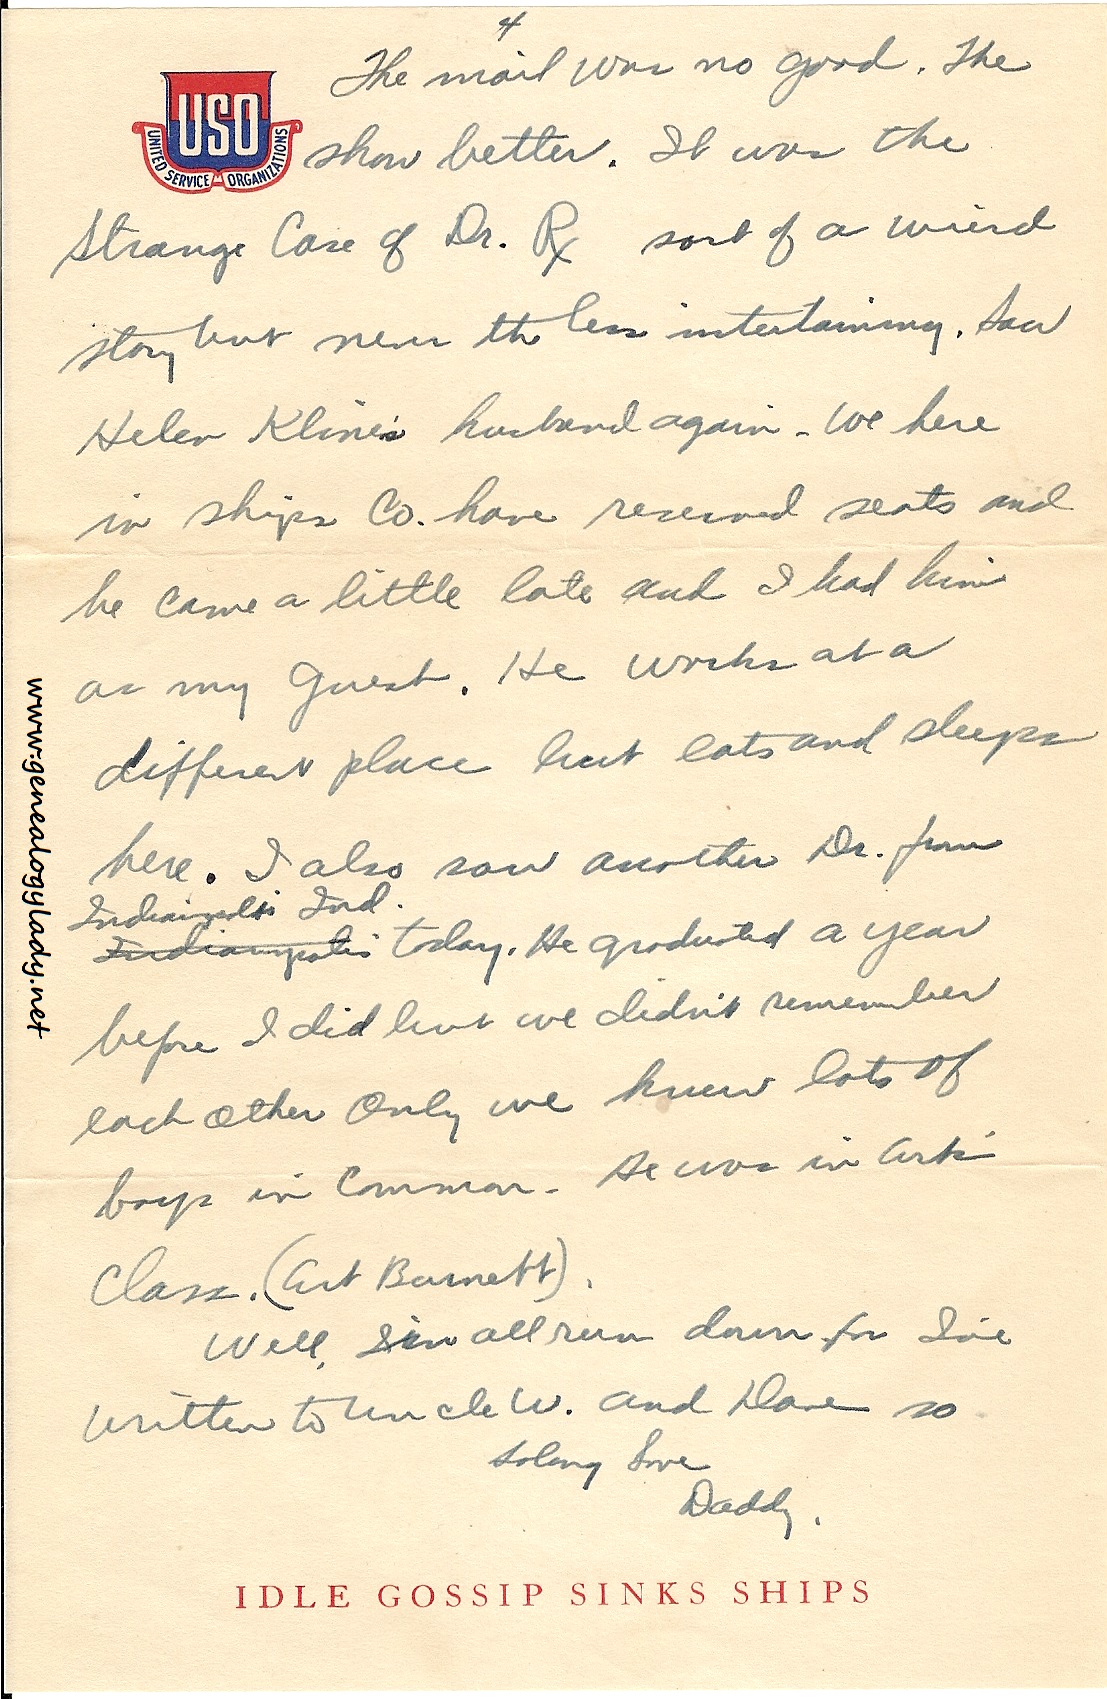 4
The mail was no good. The
USO
UNITED SERVICE ORGANIZATIONS
show better. It was the
Strange Case of Dr. Rx sort of a wierd
story but never the less intertaining. Saw
Helen Kline's husband again - We here
in ships Co. have reserved seats and
he came a little late and I had him
as my guest. He works at a
different place but eats and sleeps
here. I also saw another Dr. from
Indianpolis Ind.
Indianpolis today. He graduated a year
before I did but we didn't remember
each other Only we knew lots of
boys in Common - He was in Art's
Class. (Art Barnett).
Well, I'm all run down for I've
written to Uncle W. and Dave so
Solong Love
Daddy.
IDLE GOSSIP SINKS SHIPS
www.genealogylady.net